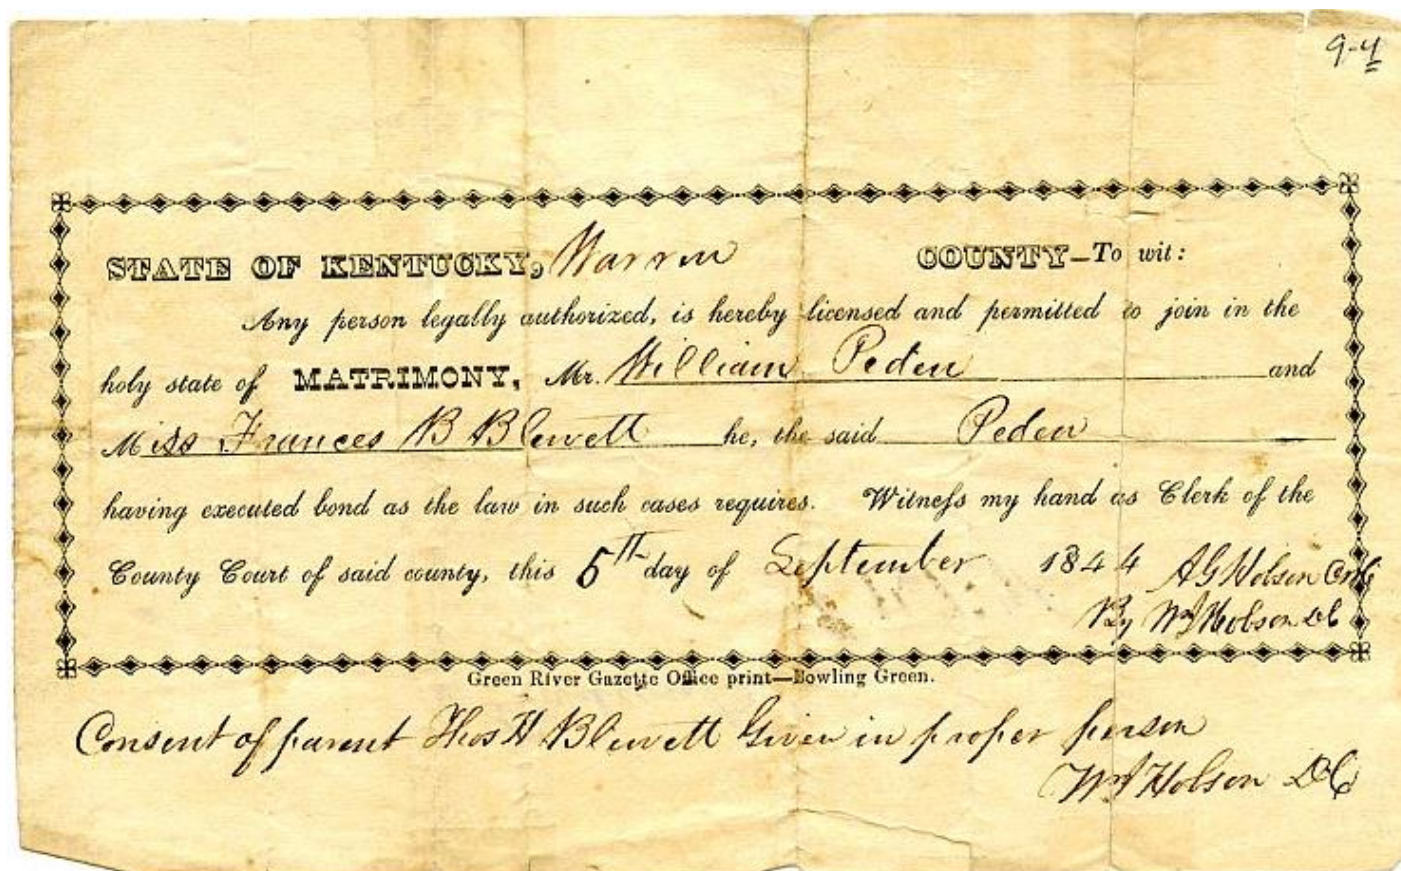 9-4
STATE OF KENTUCKY, Warren COUNTY—To wit:
Any person legally authorized, is hereby licensed and permitted to join in the
holy state of MATRIMONY, Mr. William Peden and
Miss Frances B Blewett he, the said Peden
having executed bond as the law in such cases requires. Witneſs my hand as Clerk of the
County Court of said county, this 5th day of September 1844 A G Hobson
By Wm Hobson DC
Green River Gazette Office print—Bowling Green.
Consent of parent Thos H Blewett Given in proper person
Hobson DC